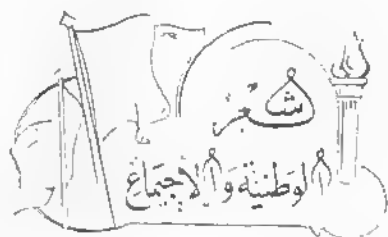 شعر
الوطنية والاجتماع